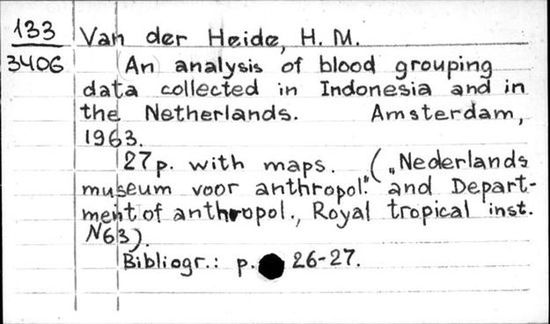 133
3406
Van der Heide, H. M.
An analysis of blood grouping
data collected in Indonesia and in
the Netherlands. Amsterdam,
1963.
27p. with maps. („Nederlands
museum voor anthropol." and Depart-
ment of anthropol., Royal tropical inst.
N63).
Bibliogr.: p. 26-27.